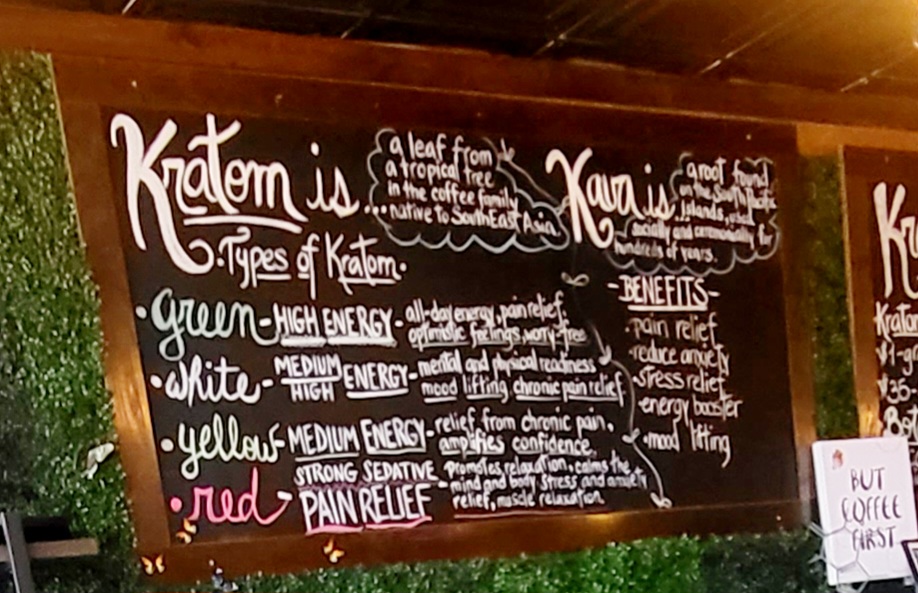 Kratom is
a leaf from
a tropical tree
in the coffee family
...native to SouthEast Asia.
•Types of Kratom•
•green-HIGH ENERGY-all-day energy, pain relief,
optimistic feelings, worry-free
•white-MEDIUM HIGH ENERGY-mental and physical readiness
mood lifting, chronic pain relief
•yellow-MEDIUM ENERGY-relief from chronic pain,
amplifies confidence
•red-STRONG SEDATIVE PAIN RELIEF-promotes relaxation, calms the
mind and body, stress and anxiety
relief, muscle relaxation
Kava is
a root found
on the South Pacific
islands, used
socially and ceremonially for
hundreds of years.
-BENEFITS-
•pain relief
•reduce anxiety
•stress relief
•energy booster
•mood lifting
Kr
Krato
BUT
COFFEE
FIRST